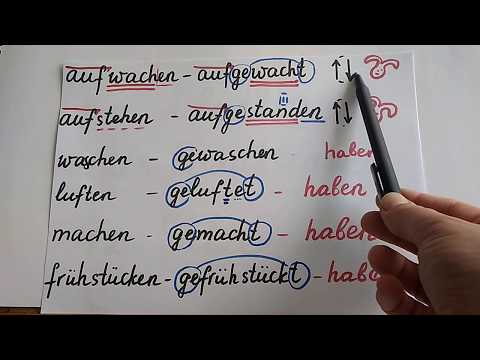 aufwachen - aufgewacht ↑↓
aufstehen - aufgestanden ↑↓
waschen - gewaschen haben
luften - geluftet - haben
machen - gemacht - haben
frühstücken - gefrühstückt - habe